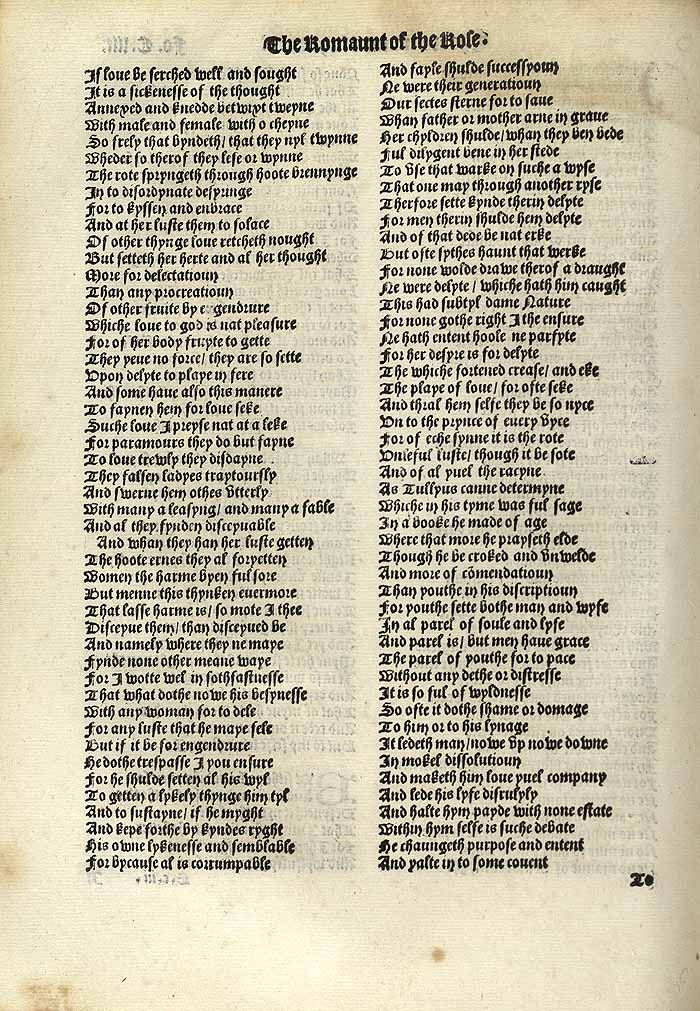 The Romaunt of the Rose.
If loue be serched well and sought
It is a sickenesse of the thought
Annexed and knedde betwixt tweyne
With male and female with o cheyne
So frely that byndeth/ that they nyl twynne
Wheder so therof they lese or wynne
The rote spryngeth through hoote brennynge
In to disordynate desyringe
For to kyssen and enbrace
And at her luste them to solace
Of other thynge loue retcheth nought
But setteth her herte and al her thought
More for delectatioun
Than any procreatioun
Of other fruite by engendrure
Whiche loue to god is nat pleasure
For of her body fruyte to gette
They yeue no force/ they are so sette
Upon delyte to playe in fere
And some haue also this manere
To faynen hem for loue seke
Suche loue I preyse nat at a leke
For paramours they do but fayne
To loue trewly they disdayne
They falsen ladyes traytoursly
And swerne hem othes vtterly
With many a leasyng/ and many a fable
And al they fynden disceyuable
And whan they han her luste getten
The hoote ernes they al foryetten
Women the harme byen ful sore
But menne this thynken euermore
That lasse harme is/ so mote I thee
Disceyue them/ than disceyued be
And namely where they ne maye
Fynde none other meane waye
For I wotte wel in sothfastnesse
That what dothe nowe his besynesse
With any woman for to dele
For any luste that he maye fele
But if it be for engendrure
He dothe trespasse I you ensure
For he shulde setten al his wyl
To getten a lykely thynge him tyl
And to sustayne/ if he myght
And kepe forthe by kyndes ryght
His owne lykenesse and semblable
For bycause al is corrumpable
And fayle shulde successyoun
Ne were their generatioun
Our sectes sterne for to saue
Whan father or mother arne in graue
Her chyldren shulde/ whan they ben dede
Ful dilygent bene in her stede
To vse that warke on suche a wyse
That one may through another ryse
Therfore sette kynde therin delyte
For men therin shulde hem delyte
And of that dede be nat erke
But ofte sythes haunt that werke
For none wolde drawe therof a draught
Ne were delyte/ whiche hath him caught
This had subtyl dame Nature
For none gothe right I the ensure
Ne hath entent hoole ne parfyte
For her desyre is for delyte
The whiche fortened crease/ and eke
The playe of loue/ for ofte seke
And thral hem selfe they be so nyce
Un to the prynce of euery vyce
For of eche synne it is the rote
Unleful luste/ though it be sote
And of al yuel the racyne
As Tullyus canne determyne
Whiche in his tyme was ful sage
In a booke he made of age
Where that more he prayseth elde
Though he be croked and vnwelde
And more of cõmendatioun
Than youthe in his discriptioun
For youthe sette bothe man and wyfe
In al parel of soule and lyfe
And parel is/ but men haue grace
The parel of youthe for to pace
Without any dethe or distresse
It is so ful of wyldnesse
So ofte it dothe shame or domage
To him or to his lynage
It ledeth man/ nowe vp nowe downe
In mokel dissolutioun
And maketh him loue yuel company
And lede his lyfe disrulyly
And halte hym payde with none estate
Within hym selfe is suche debate
He chaungeth purpose and entent
And yalte in to some couent
To